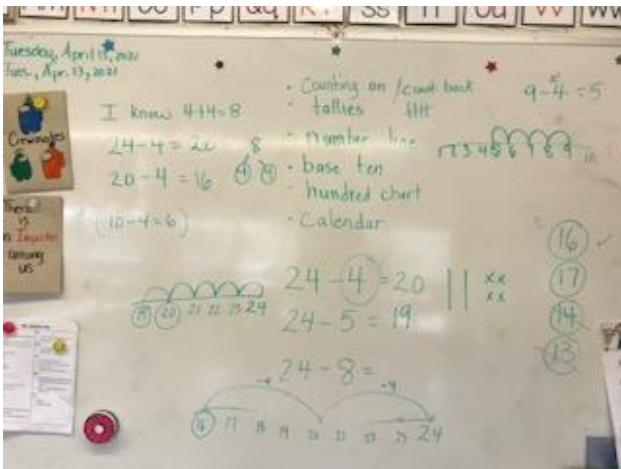 Oo Pp Qq Ss Tt Uu Vv Ww
Tuesday, April 13, 2021
Tues., Apr. 13, 2021
Crewmates
There
is
Imposter
among
us
I know 4+4=8
24-4=20
20-4=16
(10-4=6)
8
4 4
· Counting on / count back
· tallies
· number line
· base ten
hundred chart
· Calendar
9-4=5
1 2 3 4 5 6 7 8 9 10
19 20 21 22 23 24
24-4=20
24-5=19
24-8=
-4 -4
16 17 18 19 20 21 22 23 24
16
17
14
13